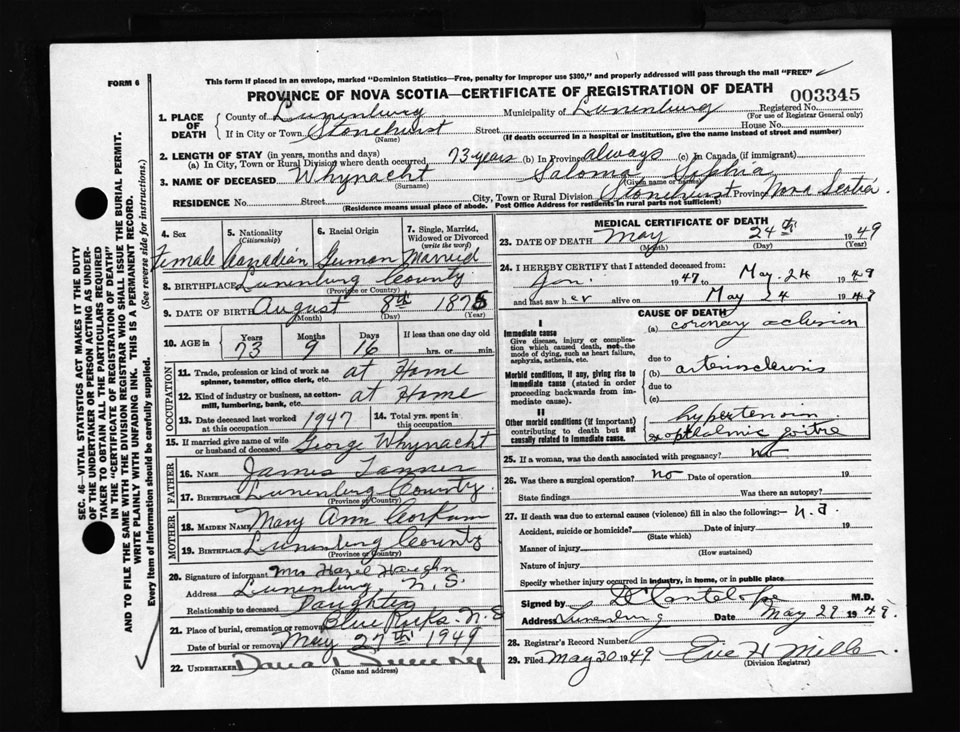 FORM 6
This form if placed in an envelope, marked "Dominion Statistics—Free, penalty for improper use $300," and properly addressed will pass through the mail "FREE"
PROVINCE OF NOVA SCOTIA—CERTIFICATE OF REGISTRATION OF DEATH 003345
1. PLACE OF DEATH { County of Lunenburg Municipality of Lunenburg Registered No. (For use of Registrar General only)
If in City or Town Stonehurst (Name) Street House No.
(If death occurred in a hospital or institution, give the name instead of street and number)
2. LENGTH OF STAY (in years, months and days)
(a) In City, Town or Rural Division where death occurred, 73 years (b) In Province always (c) In Canada (if immigrant)
3. NAME OF DECEASED Whynacht Saloma Sophia
(Surname) (Given name or names)
RESIDENCE No. Street City, Town or Rural Division Stonehurst Province Nova Scotia
(Residence means usual place of abode. Post Office Address for residents in rural parts not sufficient)
4. Sex 5. Nationality (Citizenship) 6. Racial Origin 7. Single, Married, Widowed or Divorced (write the word)
Female Canadian German Married
8. BIRTHPLACE Lunenburg County
(Province or Country)
9. DATE OF BIRTH August 8th 1875
(Month) (Day) (Year)
10. AGE in { Years Months Days If less than one day old
73 9 16 hrs. or min.
OCCUPATION
11. Trade, profession or kind of work as spinner, teamster, office clerk, etc. at Home
12. Kind of industry or business, as cotton-mill, lumbering, bank, etc. at Home
13. Date deceased last worked at this occupation 1947 14. Total yrs. spent in this occupation
15. If married give name of wife or husband of deceased George Whynacht
FATHER
16. NAME James Tanner
17. BIRTHPLACE Lunenburg County
(Province or Country)
MOTHER
18. MAIDEN NAME Mary Ann Corkum
19. BIRTHPLACE Lunenburg County
(Province or Country)
20. Signature of informant Mrs Hazel Haughn
Address Lunenburg N.S.
Relationship to deceased Daughter
21. Place of burial, cremation or removal Blue Rocks N.S
Date of burial or removal May 27th 1949
22. UNDERTAKER
(Name and address)
MEDICAL CERTIFICATE OF DEATH
23. DATE OF DEATH May 24th 1949
(Month) (Day) (Year)
24. I HEREBY CERTIFY that I attended deceased from:
Jan 1947 to May 24 1949
and last saw her alive on May 24 1949
CAUSE OF DEATH
I
Immediate cause (a) coronary occlusion
Give disease, injury or complication which caused death, not the mode of dying, such as heart failure, asphyxia, asthenia, etc.
due to
Morbid conditions, if any, giving rise to immediate cause (stated in order proceeding backwards from immediate cause). (b) arteriosclerosis
due to
(c)
II
Other morbid conditions (if important) contributing to death but not causally related to immediate cause. hypertension
exophthalmic goitre
25. If a woman, was the death associated with pregnancy? No
26. Was there a surgical operation? No Date of operation 19
State findings Was there an autopsy?
27. If death was due to external causes (violence) fill in also the following:- n.a.
Accident, suicide or homicide? Date of injury 19
(State which)
Manner of injury
(How sustained)
Nature of injury
Specify whether injury occurred in industry, in home, or in public place
Signed by D Cantelope M.D.
Address Lunenburg Date May 29 1949.
28. Registrar's Record Number
29. Filed May 30 1949 H Mills
(Division Registrar)
SEC. 46—VITAL STATISTICS ACT MAKES IT THE DUTY
OF THE UNDERTAKER OR PERSON ACTING AS UNDER-
TAKER TO OBTAIN ALL THE PARTICULARS REQUIRED
IN THE "CERTIFICATE OF REGISTRATION OF DEATH"
AND TO FILE THE SAME WITH THE DIVISION REGISTRAR WHO SHALL ISSUE THE BURIAL PERMIT.
WRITE PLAINLY WITH UNFADING INK. THIS IS A PERMANENT RECORD.
Every item of information should be carefully supplied. (See reverse side for instructions.)